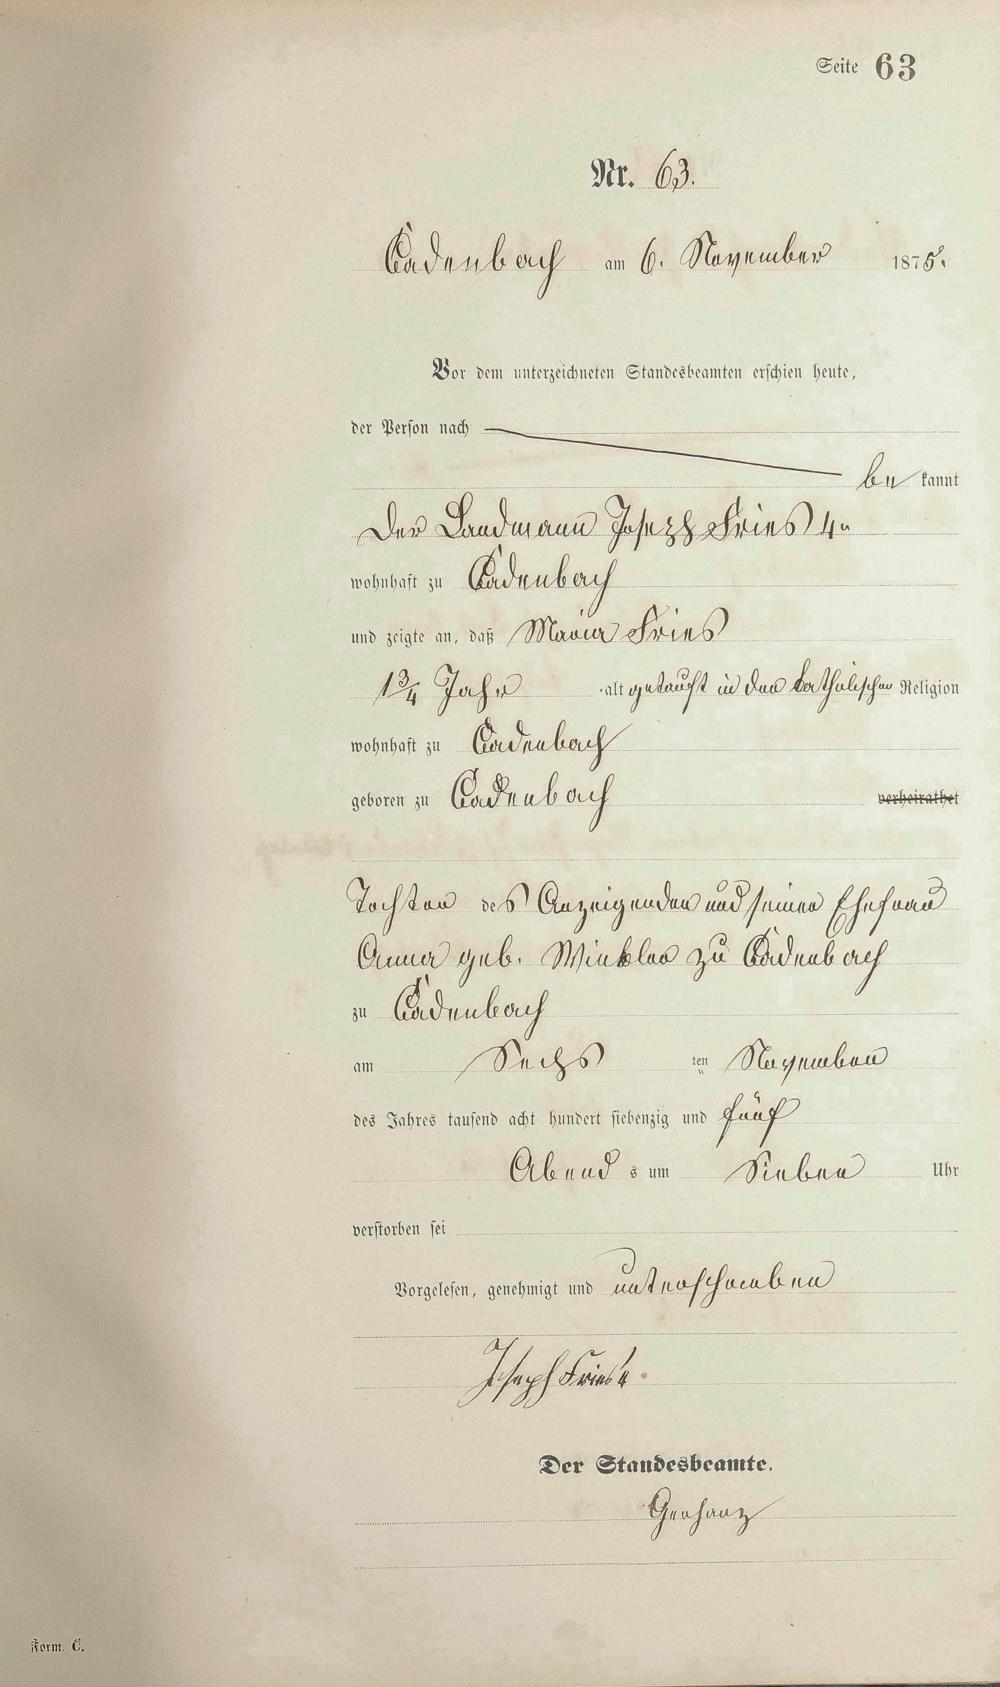 Seite 63
Nr. 63.
Cadenbach am 6. November 1875.
Vor dem unterzeichneten Standesbeamten erschien heute,
der Person nach
be kannt
Der Landmann Joseph Fries 4r
wohnhaft zu Cadenbach
und zeigte an, daß Maria Fries
1 3/4 Jahr alt getauft in der katholischen Religion
wohnhaft zu Cadenbach
geboren zu Cadenbach verheirathet
Tochter des Anzeigenden und seiner Ehefrau
Anna geb. Winkler zu Cadenbach
zu Cadenbach
am Sechs ten November
des Jahres tausend acht hundert siebenzig und fünf
Abend s um Sieben Uhr
verstorben sei
Vorgelesen, genehmigt und unterschrieben
Joseph Fries 4.
Der Standesbeamte.
Gerharz
Form. C.